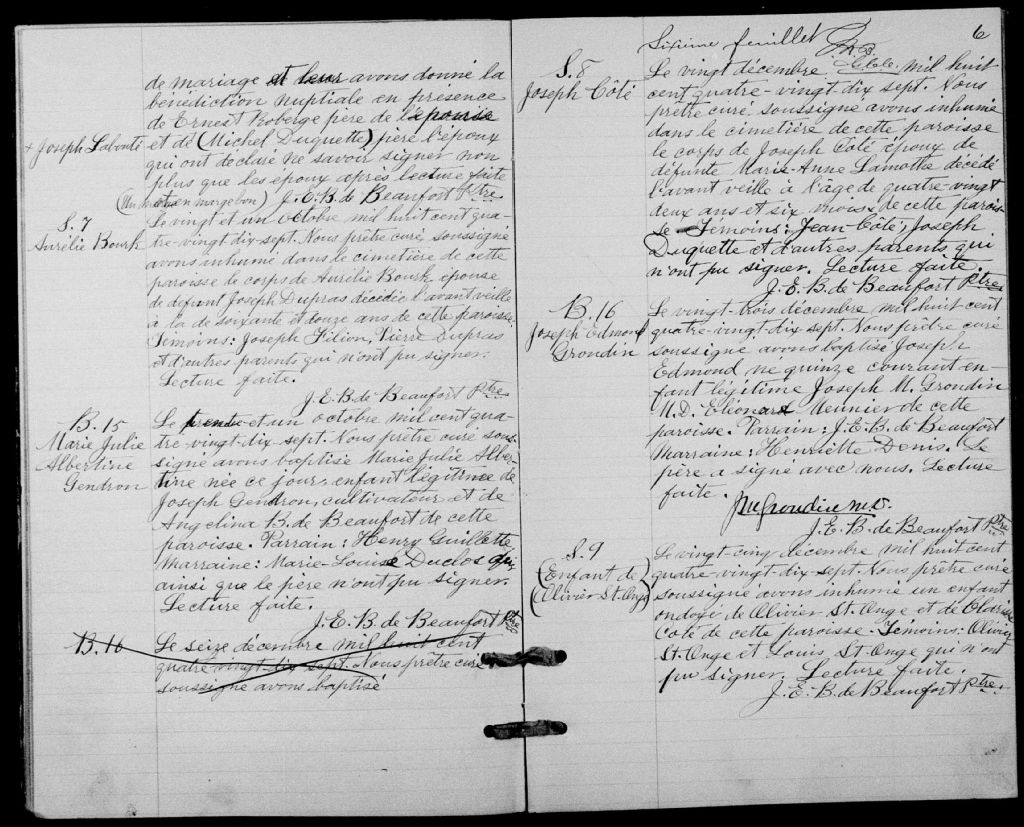 de mariage et leur avons donné la
bénédiction nuptiale en présence
de Ernest Roberge père de l'épouse
+ Joseph Labonté et de (Michel Duquette) père l'époux
qui ont declaré ne savoir signer non
plus que les époux après lecture faite
(Un mot en marge bon) J. E. B. de Beaufort Ptre
S. 7
Aurélie Bourk
Le vingt et un octobre mil huit cent qua-
tre-vingt dix-sept. Nous prêtre curé soussigné
avons inhumé dans le cimetière de cette
paroisse le corps de Aurélie Bourk, épouse
de défunt Joseph Dupras décédée l'avant veille
à la de soixante et douze ans de cette paroisse.
Temoins: Joseph Filion, Pierre Dupras
et d'autres parents qui n'ont pu signer.
Lecture faite.
J. E. B. de Beaufort Ptre
B. 15
Marie Julie
Albertine
Gendron
Le trente et un octobre mil cent qua-
tre-vingt-dix-sept. Nous prêtre curé sous-
signé avons baptisé Marie Julie Alber
tine née ce jour, enfant légitime de
Joseph Gendron, cultivateur et de
Angelina B. de Beaufort de cette
paroisse. Parrain: Henry Guillette
Marraine: Marie-Louise Duclos qui
ainsi que le père n'ont pu signer.
Lecture faite.
J. E. B. de Beaufort Ptre
B. 16
Le seize décembre mil huit cent
quatre vingt dix sept. Nous prêtre curé
soussigné avons baptisé
6
Sixième feuillet
S. 8
Joseph Côté
Le vingt décembre mil huit
cent quatre-vingt dix sept. Nous
prêtre curé soussigné avons inhumé
dans le cimetière de cette paroisse
le corps de Joseph Côté époux de
defunte Marie-Anne Lamothe décédé
l'avant veille à l'âge de quatre-vingt
deux ans et six mois de cette parois-
se - Temoins: Jean Côté, Joseph
Duquette et d'autres parents qui
n'ont pu signer. Lecture faite.
J. E. B. de Beaufort Ptre
B. 16
Joseph Edmond
Grondin
Le vingt-trois décembre mil huit cent
quatre-vingt dix sept. Nous prêtre curé
soussigné avons baptisé Joseph
Edmond né quinze courant en-
fant légitime Joseph M. Grondin
M. D. Meunier de cette
paroisse. Parrain: J. E. B. de Beaufort
Marraine: Henriette Denis. Le
père a signé avec nous. Lecture
faite.
JM Grondin M.D.
J. E. B. de Beaufort Ptre
S. 9
(Enfant de
(Olivier St. Onge
Le vingt cinq décembre mil huit cent
quatre-vingt-dix-sept. Nous prêtre curé
soussigné avons inhumé un enfant
ondoyé de Olivier St. Onge et de Clarisse
Coté de cette paroisse - Témoins: Olivier
St. Onge et Louis St. Onge qui n'ont
pu signer. Lecture faite.
J. E. B. de Beaufort Ptre.